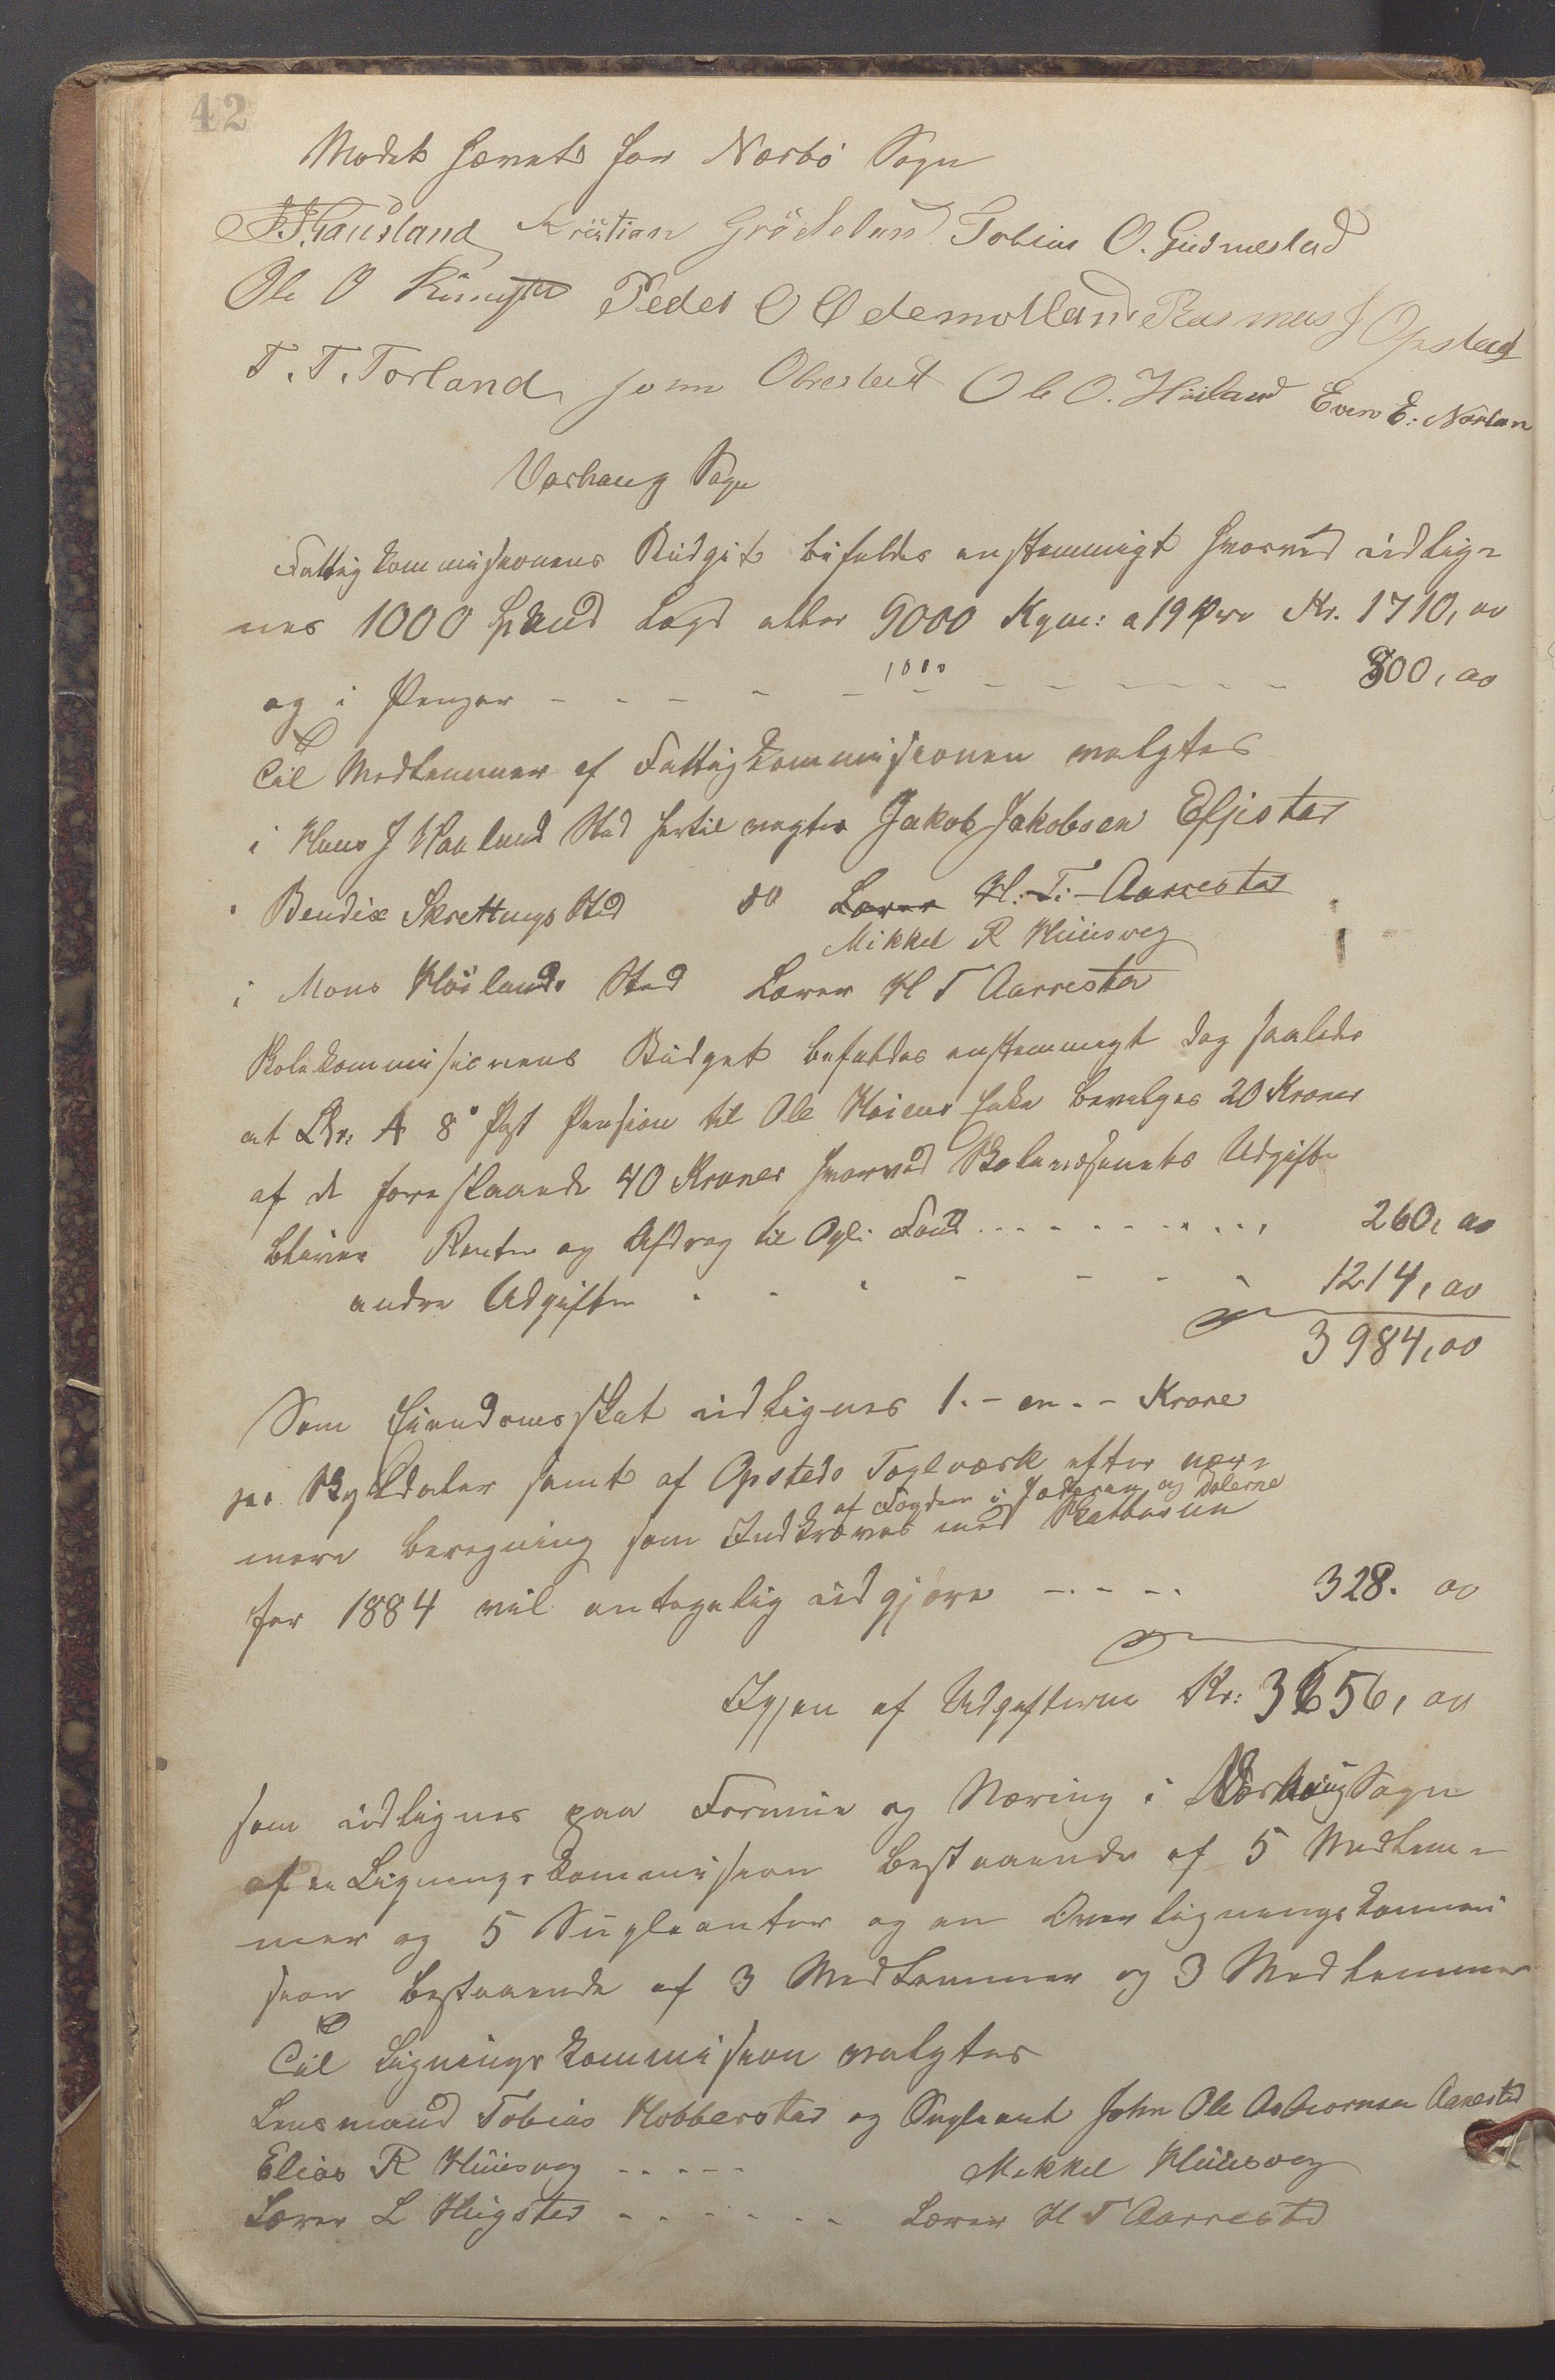 42
Mødet hævet for Nærbø Sogn
Kristian Grödeland Tobias O. Gudmestad
Ole O Peder O Ødemotland Rasmus J Opstad
T. T. Torland John Obrestad Ole O. Höiland Even E. Nærlan
Varhaug Sogn
Fattigkommissionens Büdgit bifaldes enstemmigt hvorved üdlig-
nes 1000 Spand Byg eller 9000 Kgm: a 19 Øre Kr. 1710, 00
1000
og i Penger - - - - - - - - - - 800, 00
Til Medlemmer af Fattigkommissionen valgtes
i Hans J Haaland Sted hertil valgtes Jakob Jakobsen Efjestad
i Bendix Skrettings Sted do Lærer H. T. Aarrestad
Mikkel R Hüüsveg
i Mons Höilands Sted Lærer H T Aarrestad
Skolekommissionens Büdget bifaldes enstemmigt dog saaledes
at Litr. A 8° Post Pension til Ole Enke bevilges 20 Kroner
af de foreslaaede 40 Kroner hvorved Skolevæsenets Udgifter
bliver Renter og Afdrag til Opl. Fond - - - - - - 260, 00
andre Udgifter - - - - - - 1214, 00
3984,00
Som Eiendomsskat üdlignes 1. - en - Krone
pr. Skylddaler samt af Opsteds Teglværk efter nær-
af Fogden i Jæderen og Dalerne
mere beregning som Indkræves med Skatterne
for 1884 vil antagelig üdgjøre - - - - 328. 00
Igjen af Udgifterne Kr: 3656, 00
som üdlignes paa Formue og Næring i Varhaug Sogn
af en Ligningskommission bestaaende af 5 Medlem-
mer og 5 Süpleanter og en Overligningskommi
sion bestaaende af 3 Medlemmer og 3 Medlemmer
Til Ligningskommission valgtes
Lensmand Tobias Hobberstad og Supleant John Ole Asbiornsen Aarrestad
Elias R Hüüsveg - - - - - Mikkel Hüüsveg
Lærer L Högstad - - - - - - Lærer H T Aarrestad